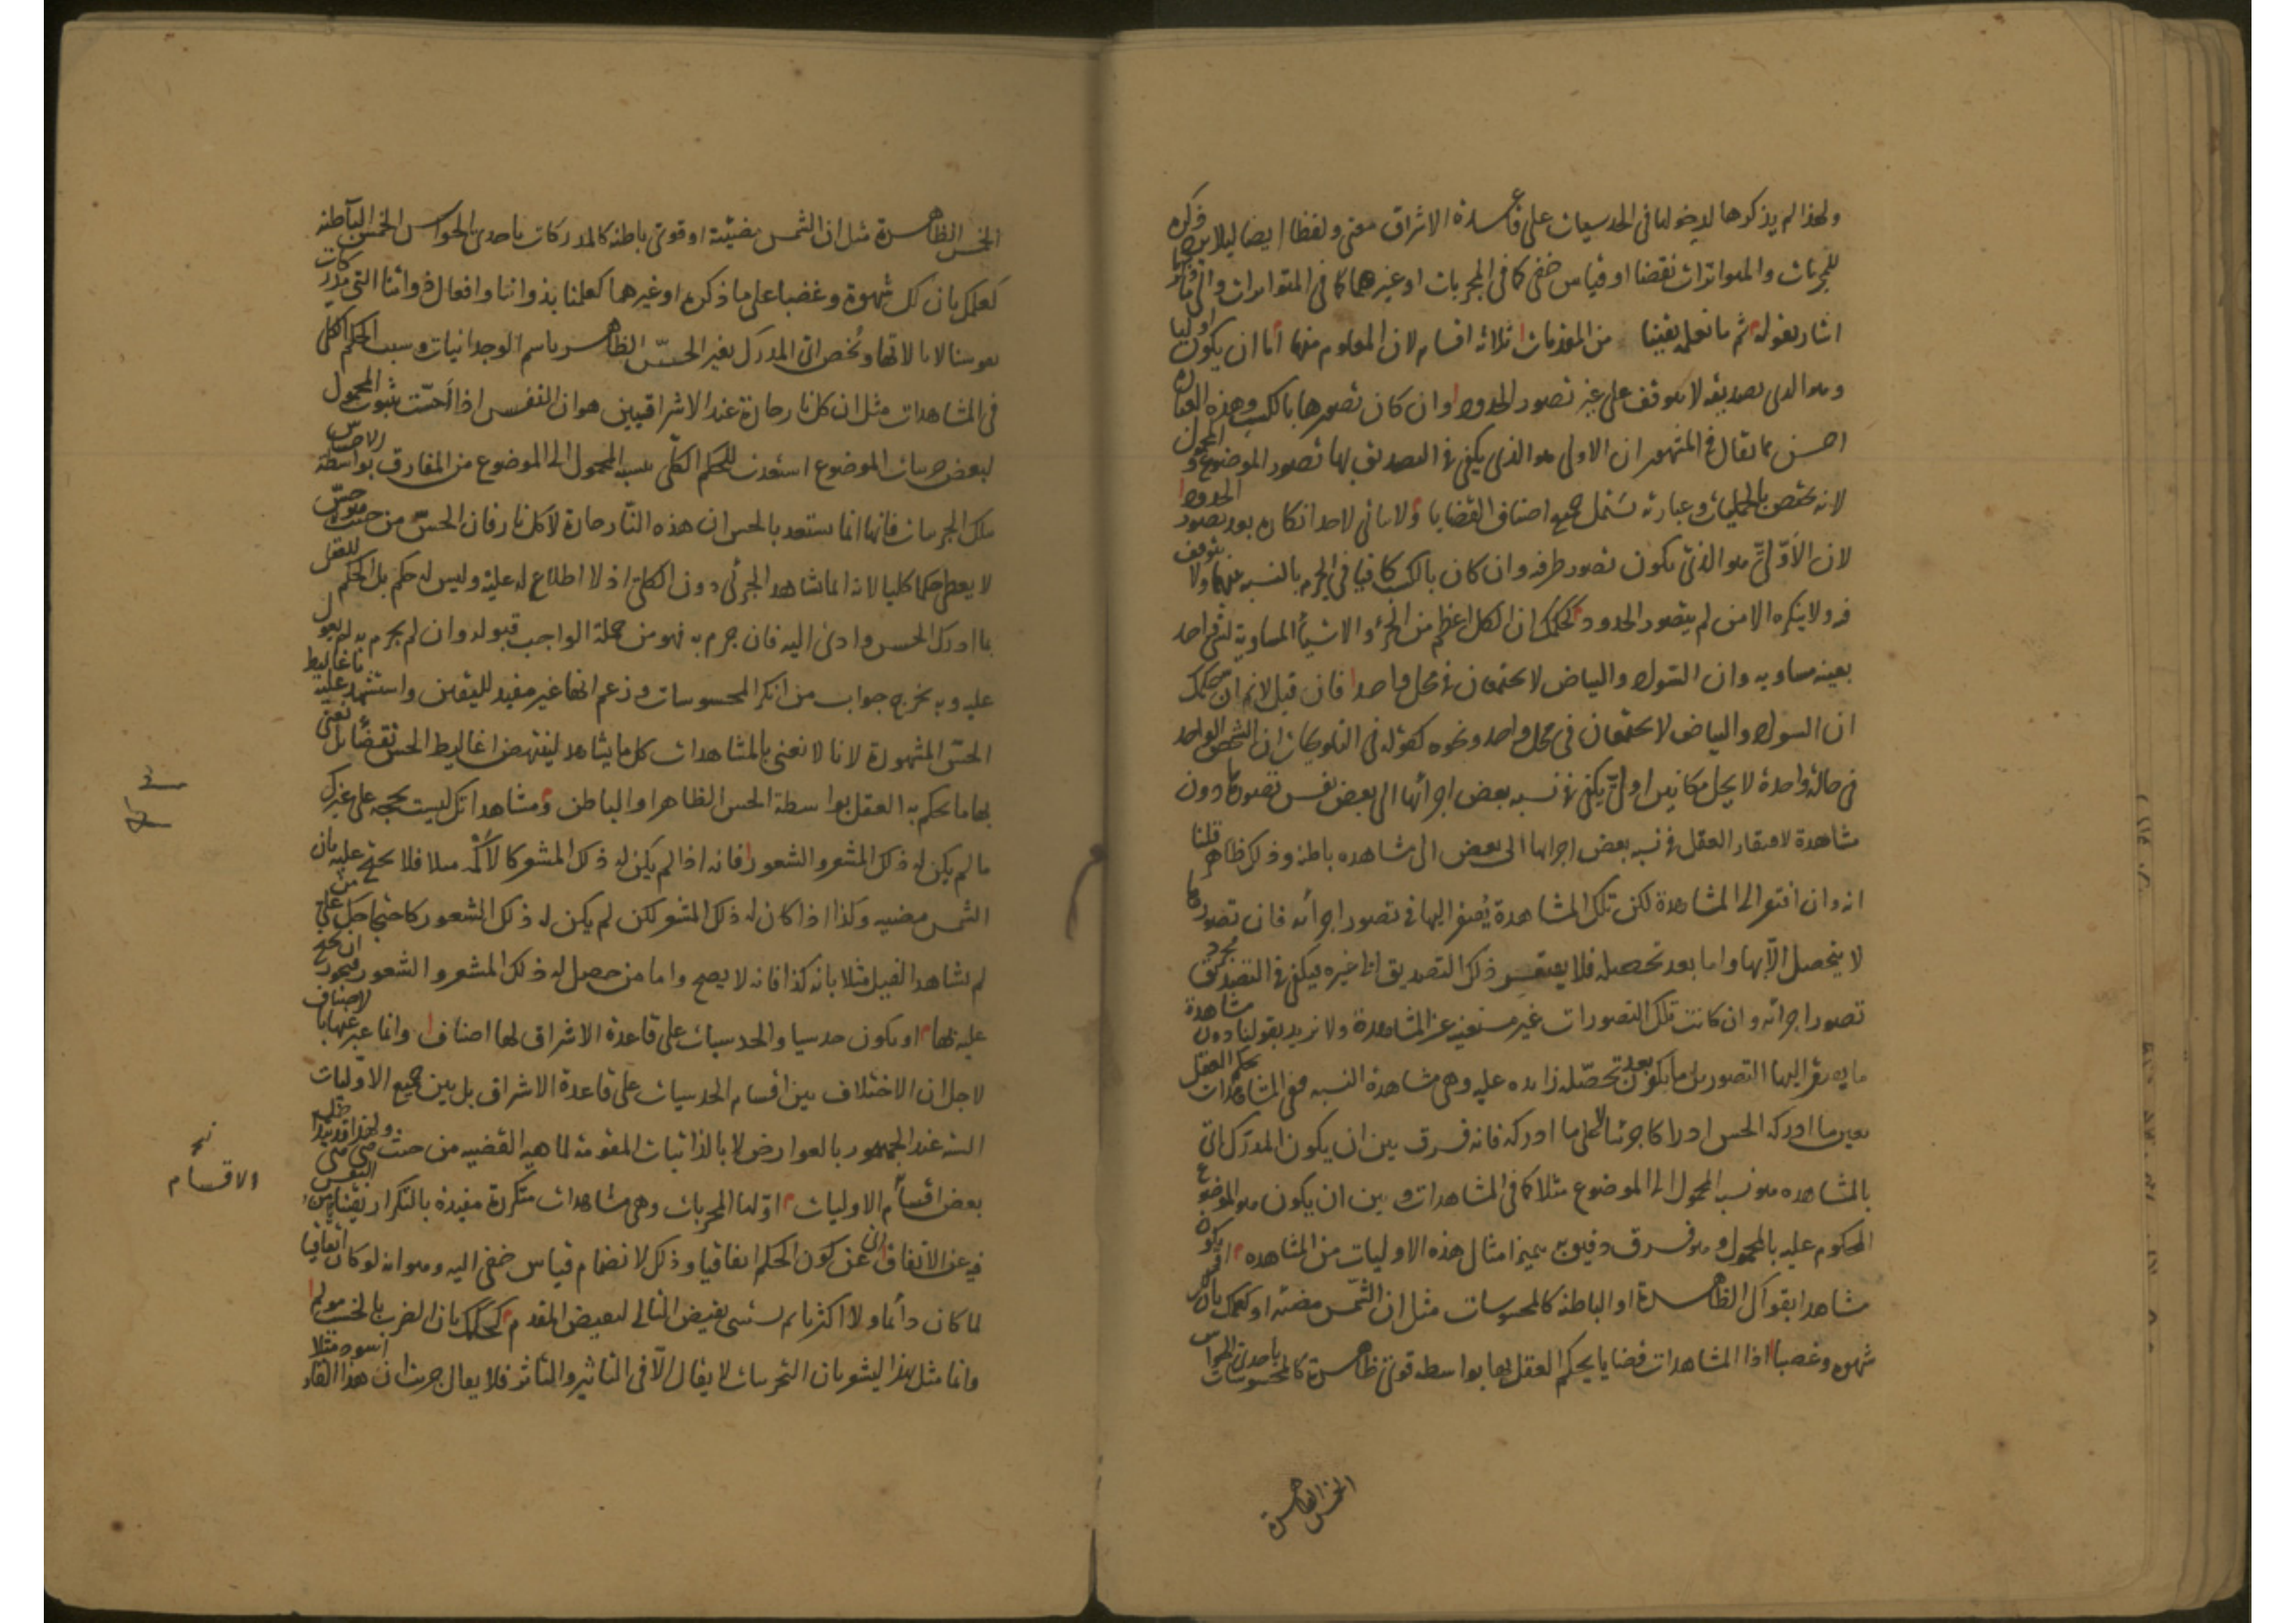 ولهذا لم يذكرها لدخولها في الحدسيات على قاعدة الاشراق معنى ولفظا ايضا ليلا يرد ذكره
للمجربات والمتواترات نقضا او قياس خفي كما في المجربات او غيرهما كما في المتواترات والى
اشار بقوله ثم ما نعلمه يقينا من المقدمات ثلاثة اقسام لان المعلوم منها اما ان يكون اوليا
وهو الذي تصديقه لا يتوقف على غير تصور الحدود وان كان تصورها بالكسب وهذه العبارة
احسن مما يقال في المشهور ان الاولى هو الذي يكفي في التصديق بها تصور الموضوع والمحمول
لانه يختص بالحمليات وعبارته تشمل جميع اصناف القضايا ولا يتاتى لاحد انكاره بعد تصور الحدود
لان الاَوّليّ هو الذي يكون تصور طرفيه وان كان بالكسب كافيا في الجزم بالنسبة بينهما ولا يتوقف
فيه ولا ينكره الا من لم يتصور الحدود كحكمك ان الكل اعظم من الجزء والاشياء المساوية لشي واحد
بعينه متساوية وان السواد والبياض لا يجتمعان في محل واحد فان قيل لا نم ان حكمك
ان السواد والبياض لا يجتمعان في محل واحد ونحوه كقوله في التلويحات ان الشخص الواحد
في حالة واحدة لا يحل مكانين اوليّ يكفي في نسبة بعض اجزائها الى بعض نفس تصورها دون
مشاهدة لافتقار العقل في نسبة بعض اجزائها الى بعض الى مشاهدة باطنة وذلك ظاهر قلنا
انه وان افتقر الى المشاهدة لكن تلك المشاهدة يُفتقر اليها في تصور اجزائه فان تصورها
لا يتحصل الّا بها واما بعد تحصيله فلا يفتقر ذلك التصديق الى غيره فيكفي في التصديق مجرد
تصور اجزائه وان كانت تلك التصورات غير مستغنية عن المشاهدة ولا نريد بقولنا دون مشاهدة
ما يفتقر اليها التصور بل ما يكون بعد تحصّله زايدة عليه وهي مشاهدة النسبة ففي المشاهدات يحكم العقل
بعين ما ادركه الحس ادراكا جزئيا لا على ما ادركه فانه فرق بين ان يكون المدرَك اي
بالمشاهدة هو نسبة المحمول الى الموضوع مثلا كما في المشاهدات وبين ان يكون هو الموضوع
المحكوم عليه بالمحمول وهو فرق دقيق به يميز امثال هذه الاوليات من المشاهدة او يكون
مشاهدا بقواك الظاهرة او الباطنة كالمحسوسات مثل ان الشمس مضيئة او كعلمك بان لك
شهوة وغضبا اذ المشاهدات قضايا يحكم العقل بها بواسطة قوى ظاهرة كالمحسوسات باحدى الحواس
الخمس الظاهرة
الخمس الظاهرة مثل ان الشمس مضيئة او قوى باطنة كالمدركات باحدى الحواس الخمس الباطنة
كعلمك بان لك شهوة وغضبا على ما ذكره او غيرهما كعلمنا بذواتنا وافعال ذواتنا التي ندركها
بنفوسنا لا بآلاتها ونُخصّ اي المدرَك بغير الحسّ الظاهر باسم الوجدانيات وسبب الحكم الكلي
في المشاهدات مثل ان كل نار حارة عند الاشراقيين هو ان النفس اذا اَحسّت بثبوت المحمول
لبعض جزئيات الموضوع استعدت للحكم الكلّي بنسبة المحمول الى الموضوع من المفارق بواسطة الاحساس
بتلك الجزئيات فانها انما تستعد بالحس ان هذه النار حارة لا كل نار فان الحسّ من حيث هو حسّ
لا يعطي حكما كليا لانه انما يشاهد الجزئي دون الكلي اذ لا اطلاع له عليه وليس له حكم بل الحكم للعقل
بما ادرك الحس وادى اليه فان جزم به فهو من جملة الواجب قبوله وان لم يجزم به لم يعول
عليه وبه يخرج جواب من انكر المحسوسات وزعم انها غير مفيد لليقين واستشهد عليه باغاليط
الحسّ المشهورة لانا لا نعني بالمشاهدات كل ما يشاهد لينتهض اغاليط الحس نقضا بل نعني
بها ما يحكم به العقل بواسطة الحس الظاهر او الباطن ومشاهداتك ليست بحجة على غيرك
ما لم يكن له ذلك المشعر والشعور فانه اذا لم يكن له ذلك المشعر كالاَكْمه مثلا فلا يحتج عليه بان
الشمس مضيئة وكذا اذا كان له ذلك المشعر لكن لم يكن له ذلك الشعور كاحتجاجك على من
لم يشاهد الفيل مثلا بانه كذا فانه لا يصح واما من حصل له ذلك المشعر والشعور فيجوز ان يحتج
عليه بها او يكون حدسيا والحدسيات على قاعدة الاشراق لها اصناف وانما عبر عنها بالاصناف
لاجل ان الاختلاف بين اقسام الحدسيات على قاعدة الاشراق بل بين جميع الاوّليات
الستة عند الجمهور بالعوارض لا بالذاتيات المقومة لماهية القضية من حيث هي هي
بعض اقسام الاوليات اوّلها المجربات وهي مشاهدات متكررة مفيدة بالتكرار يقينا
فيه عن الاتفاق اي عن كون الحكم اتفاقيا وذلك لانضمام قياس خفي اليه وهو انه لو كان اتفاقيا
لما كان دائما ولا اكثريا ثم يستثنى نقيض التالي لنقيض المقدم كحكمك بان الضرب بالخشب مولم
وانما مثل بهذا ليشعر بان التجربيات لا يقال الّا في التاثير والتاثر فلا يقال جربت ان هذا القار اسود مثلا
نح
الاقسام